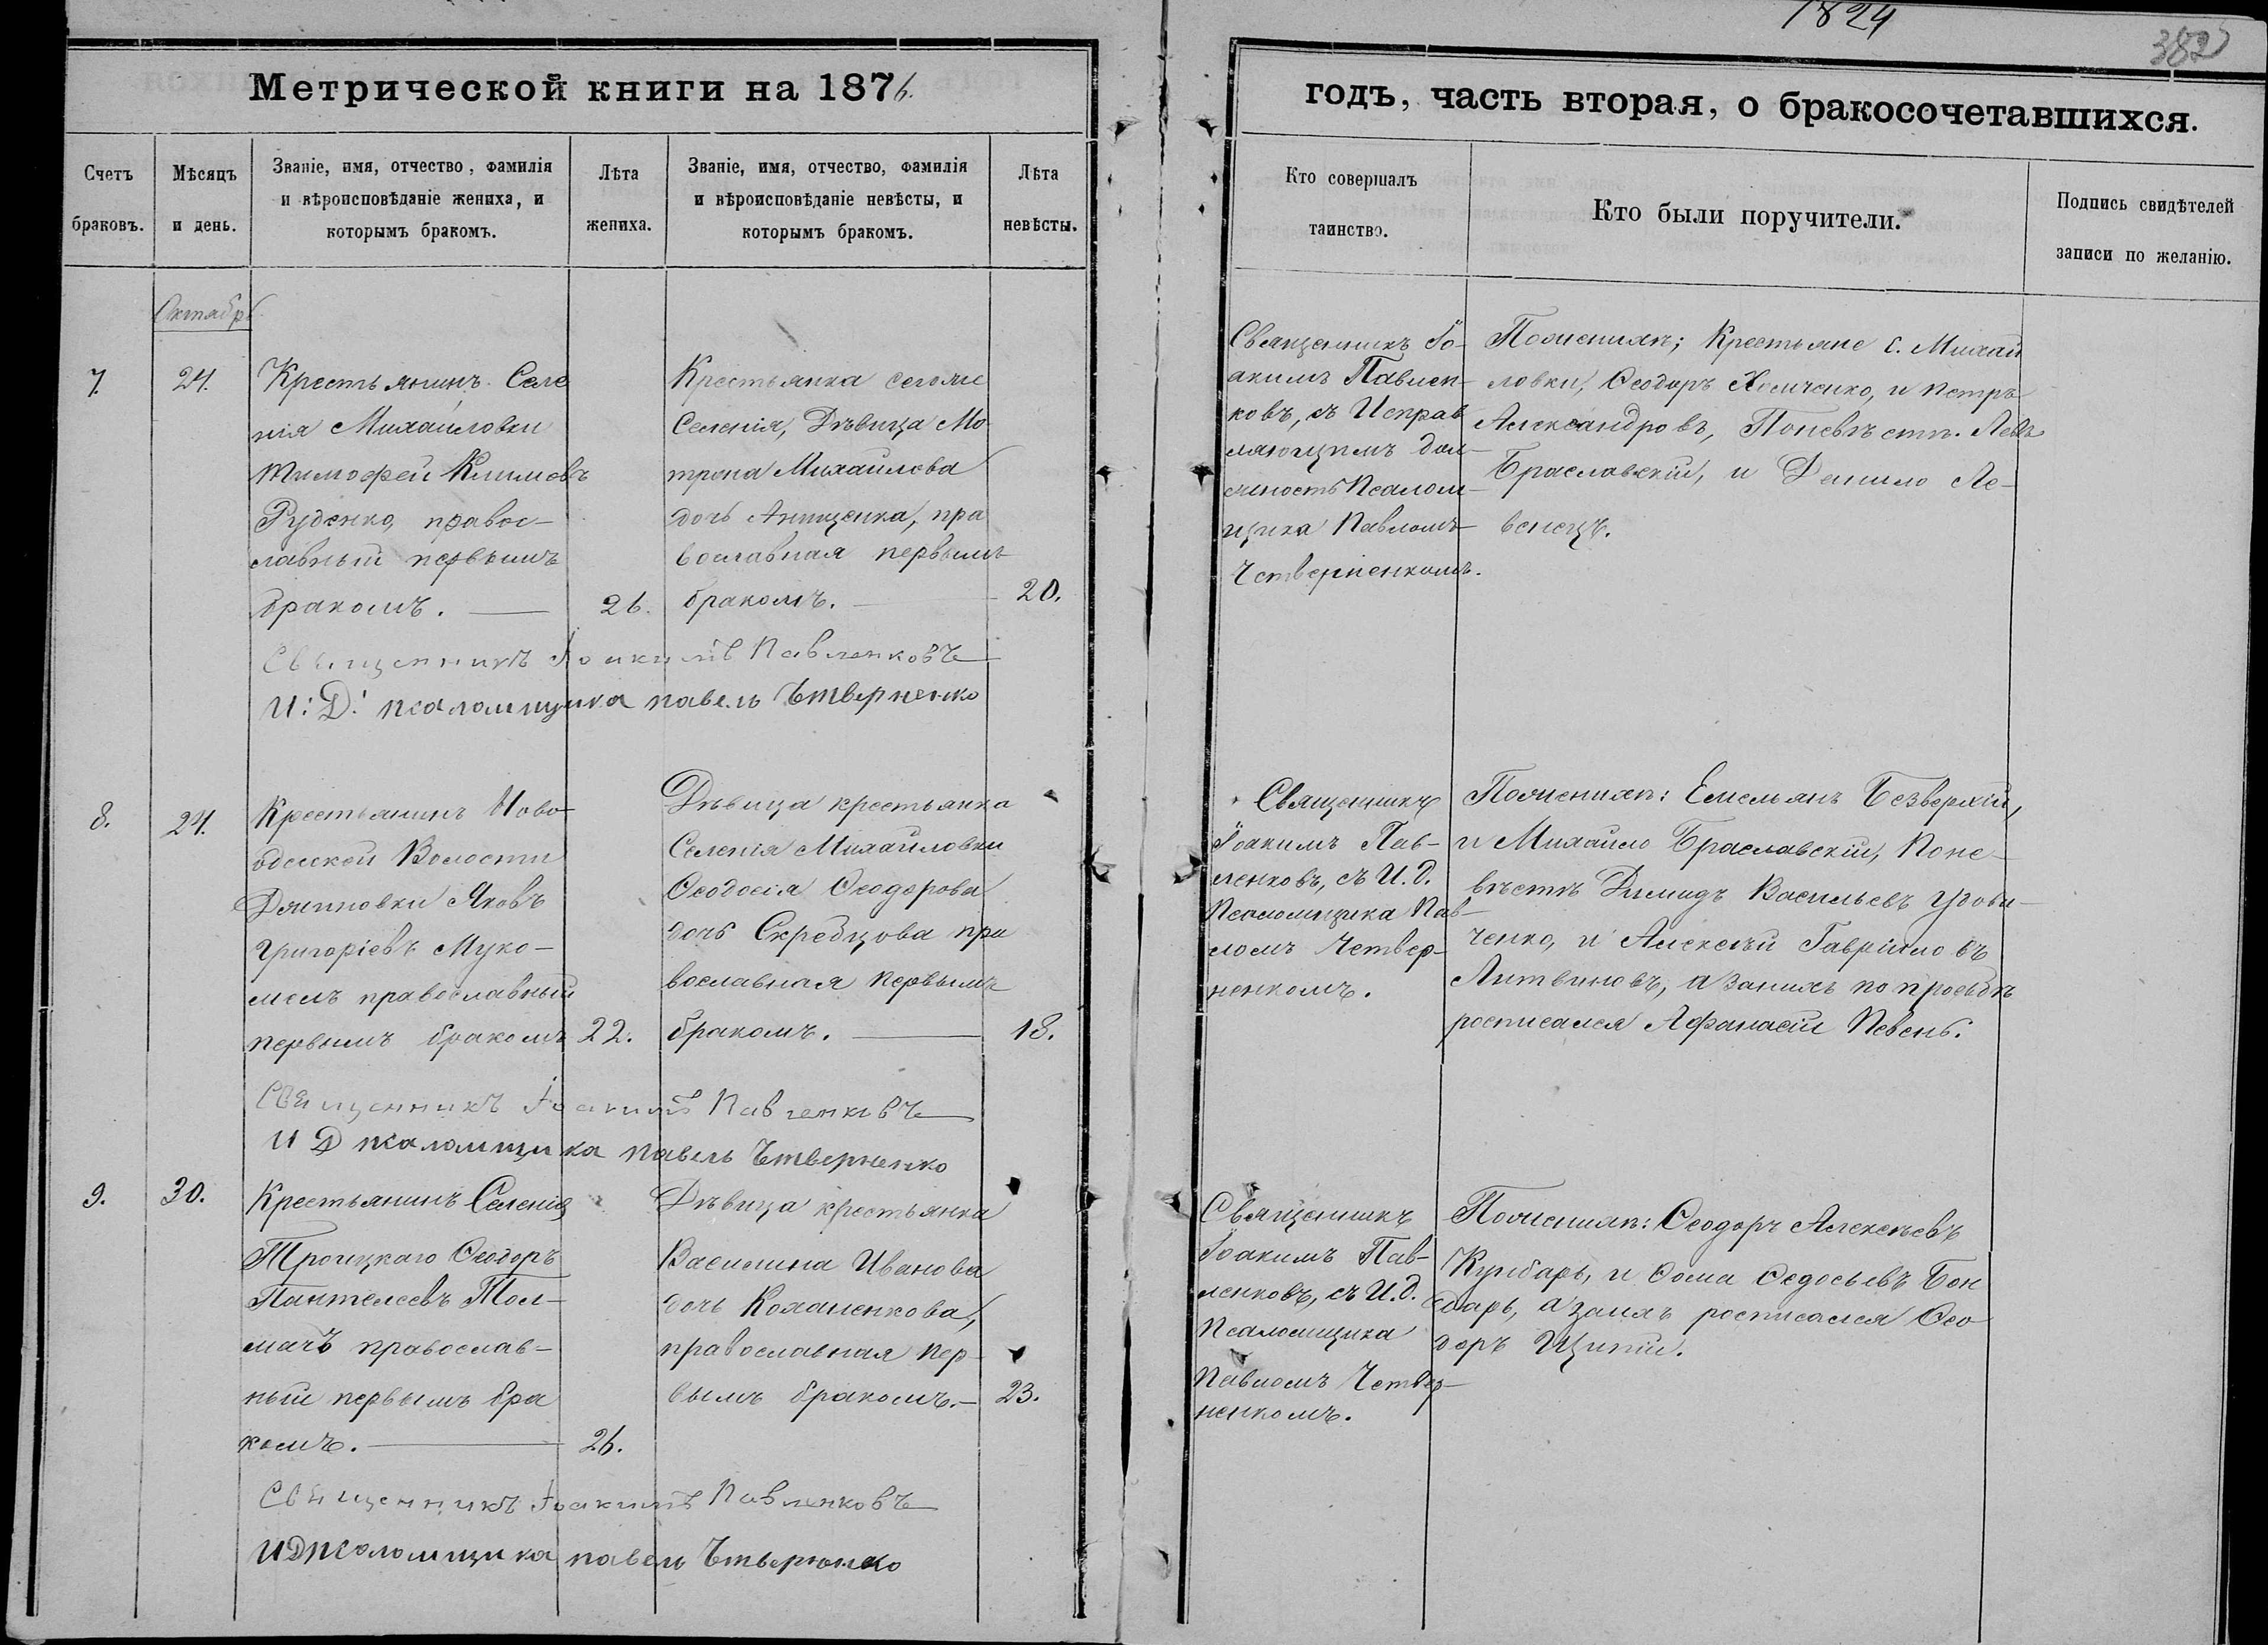 1824
382
Метрической книги на 1876.
годъ, часть вторая, о бракосочетавшихся.
Счетъ браковъ.
Мѣсяцъ и день.
Званіе, имя, отчество, фамилія
и вѣроисповѣданіе жениха, и
которымъ бракомъ.
Лѣта жениха.
Званіе, имя, отчество, фамилія
и вѣроисповѣданіе невѣсты, и
которымъ бракомъ.
Лѣта невѣсты.
Кто совершалъ
таинство.
Кто были поручители.
Подпись свидѣтелей
записи по желанію.
Октябрь
7.
24.
Крестьянинъ Селе
нія Михайловки
Тимофей Климовъ
Руденко, правос-
лавный первымъ
бракомъ.
26.
Крестьянка сегоже
Селенія, Дѣвица Мо
трона Михайлова
дочь Анищенка, пра
вославная первымъ
бракомъ.
20.
Священникъ Іо-
акимъ Павлен-
ковъ, съ Исправ
ляющимъ дол-
жность Псалом-
щика Павломъ
Четверненкомъ.
По женихѣ; Крестьяне с. Михай
ловки, Ѳеодоръ Хомченко, и Петръ
Александровъ, По невѣстѣ. Левъ
Браславскій, и Данило Ле-
венецъ.
Священникъ Іоакимъ Павленковъ
И: Д: псаломщика павелъ Четверненко
8.
24.
Крестьянинъ Ново-
одесской Волости
Дымовки Яковъ
Григоріевъ Муко-
мелъ православный
первымъ бракомъ
22.
Дѣвица крестьянка
Селенія Михайловки
Ѳеодосія Ѳеодорова
дочь Скребцова пра
вославная первымъ
бракомъ.
18.
Священникъ
Іоакимъ Пав-
ленковъ, съ И.д.
Псаломщика Пав-
ломъ Четвер-
ненкомъ.
По женихѣ: Емельянъ Безверхій,
и Михайло Браславскій, По не-
вѣстѣ Димидъ Васильевъ Удови-
ченко, и Алексѣй Гавріиловъ
Литвиновъ, а за нихъ по прозьбѣ
росписался Афанасій Певень.
Священникъ Іоакимъ Павленковъ
И Д псаломщика павелъ Четверненко
9.
30.
Крестьянинъ Селенія
Троицкаго Ѳеодоръ
Пантелеевъ Тол-
мачъ православ-
ный первымъ бра
комъ.
26.
Дѣвица крестьянка
Василина Иванова
дочь Коханенкова,
православная пер-
вымъ бракомъ.
23.
Священникъ
Іоакимъ Пав-
ленковъ, съ И.д.
Псаломщика
Павломъ Четвер-
ненкомъ.
По женихѣ: Ѳеодоръ Алексѣевъ
и Ѳома Ѳедосьевъ Бон
дарь, а за нихъ росписался Ѳео
доръ
Священникъ Іоакимъ Павленковъ
И Д псаломщика павелъ Четверненко